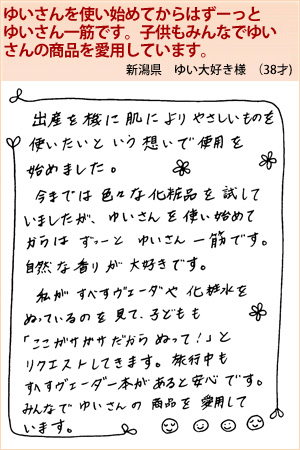 ゆいさんを使い始めてからはずーっと
ゆいさん一筋です。子供もみんなでゆい
さんの商品を愛用しています。
新潟県　ゆい大好き様　（38才）
出産を機に肌によりやさしいものを
使いたいという想いで使用を
始めました。
今までは色々な化粧品を試して
いましたが、ゆいさんを使い始めて
からは ずっーと ゆいさん一筋です。
自然な香りが大好きです。
私がすべすヴェーダや化粧水を
ぬっているのを見て、子どもも
「ここがカサカサだからぬって！」と
リクエストしてきます。旅行中も
すべすヴェーダ一本があると安心です。
みんなでゆいさんの商品を愛用して
います。